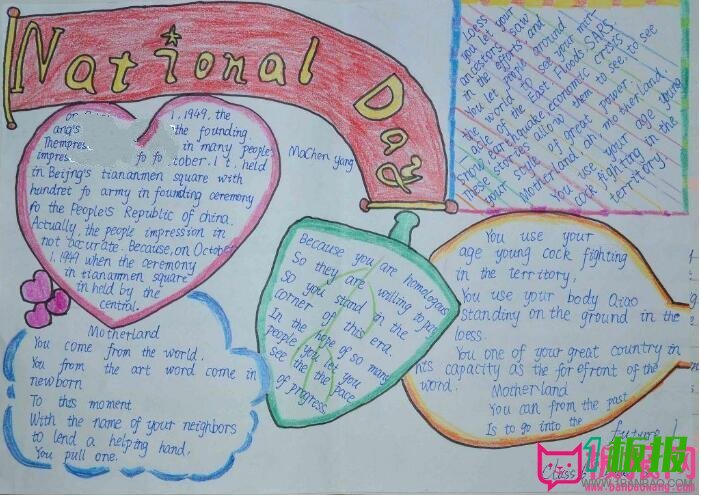 National Day
1, 1949, the
the founding
in many people
tober. 1 t. held
in Beijng's tiananmen square with
hundret fo army in founding ceremony
fo the People's Republic of china.
Actually, the people impression in
not accurate. Because, on October
1, 1949 when the ceremony
in tiananmen square
in held by the
central.
MoChen yang
Loess
you let your
ancestors saw
in the efforts, and
you let people around
the world to see your merit
able of the East. Floods SARS.
Snow earthquake economic crisis
these stories allow them to see, to see
your style of great power
Motherland, ah, motherland!
You use your age young
cock fighting in the
territory.
Because you are homologous
So they are willing to pay
So you stand in the
corner of this era.
In the hope of so many
people you let you
see the the pace
of progress.
You use your
age young cock fighting
in the territory,
You use your body Qiao
standing on the ground in the
loess.
You one of your great country in
his capacity as the forefront of the
word. Motherland
You can from the past
Is to go into the
future!
Motherland
You come from the world.
You from the art word come in
newborn
To this moment
With the name of your neighbors
to lend a helping hand.
You pull one.
Class
1板报
WWW.1BANBAO.COM
www.banbaowang.com